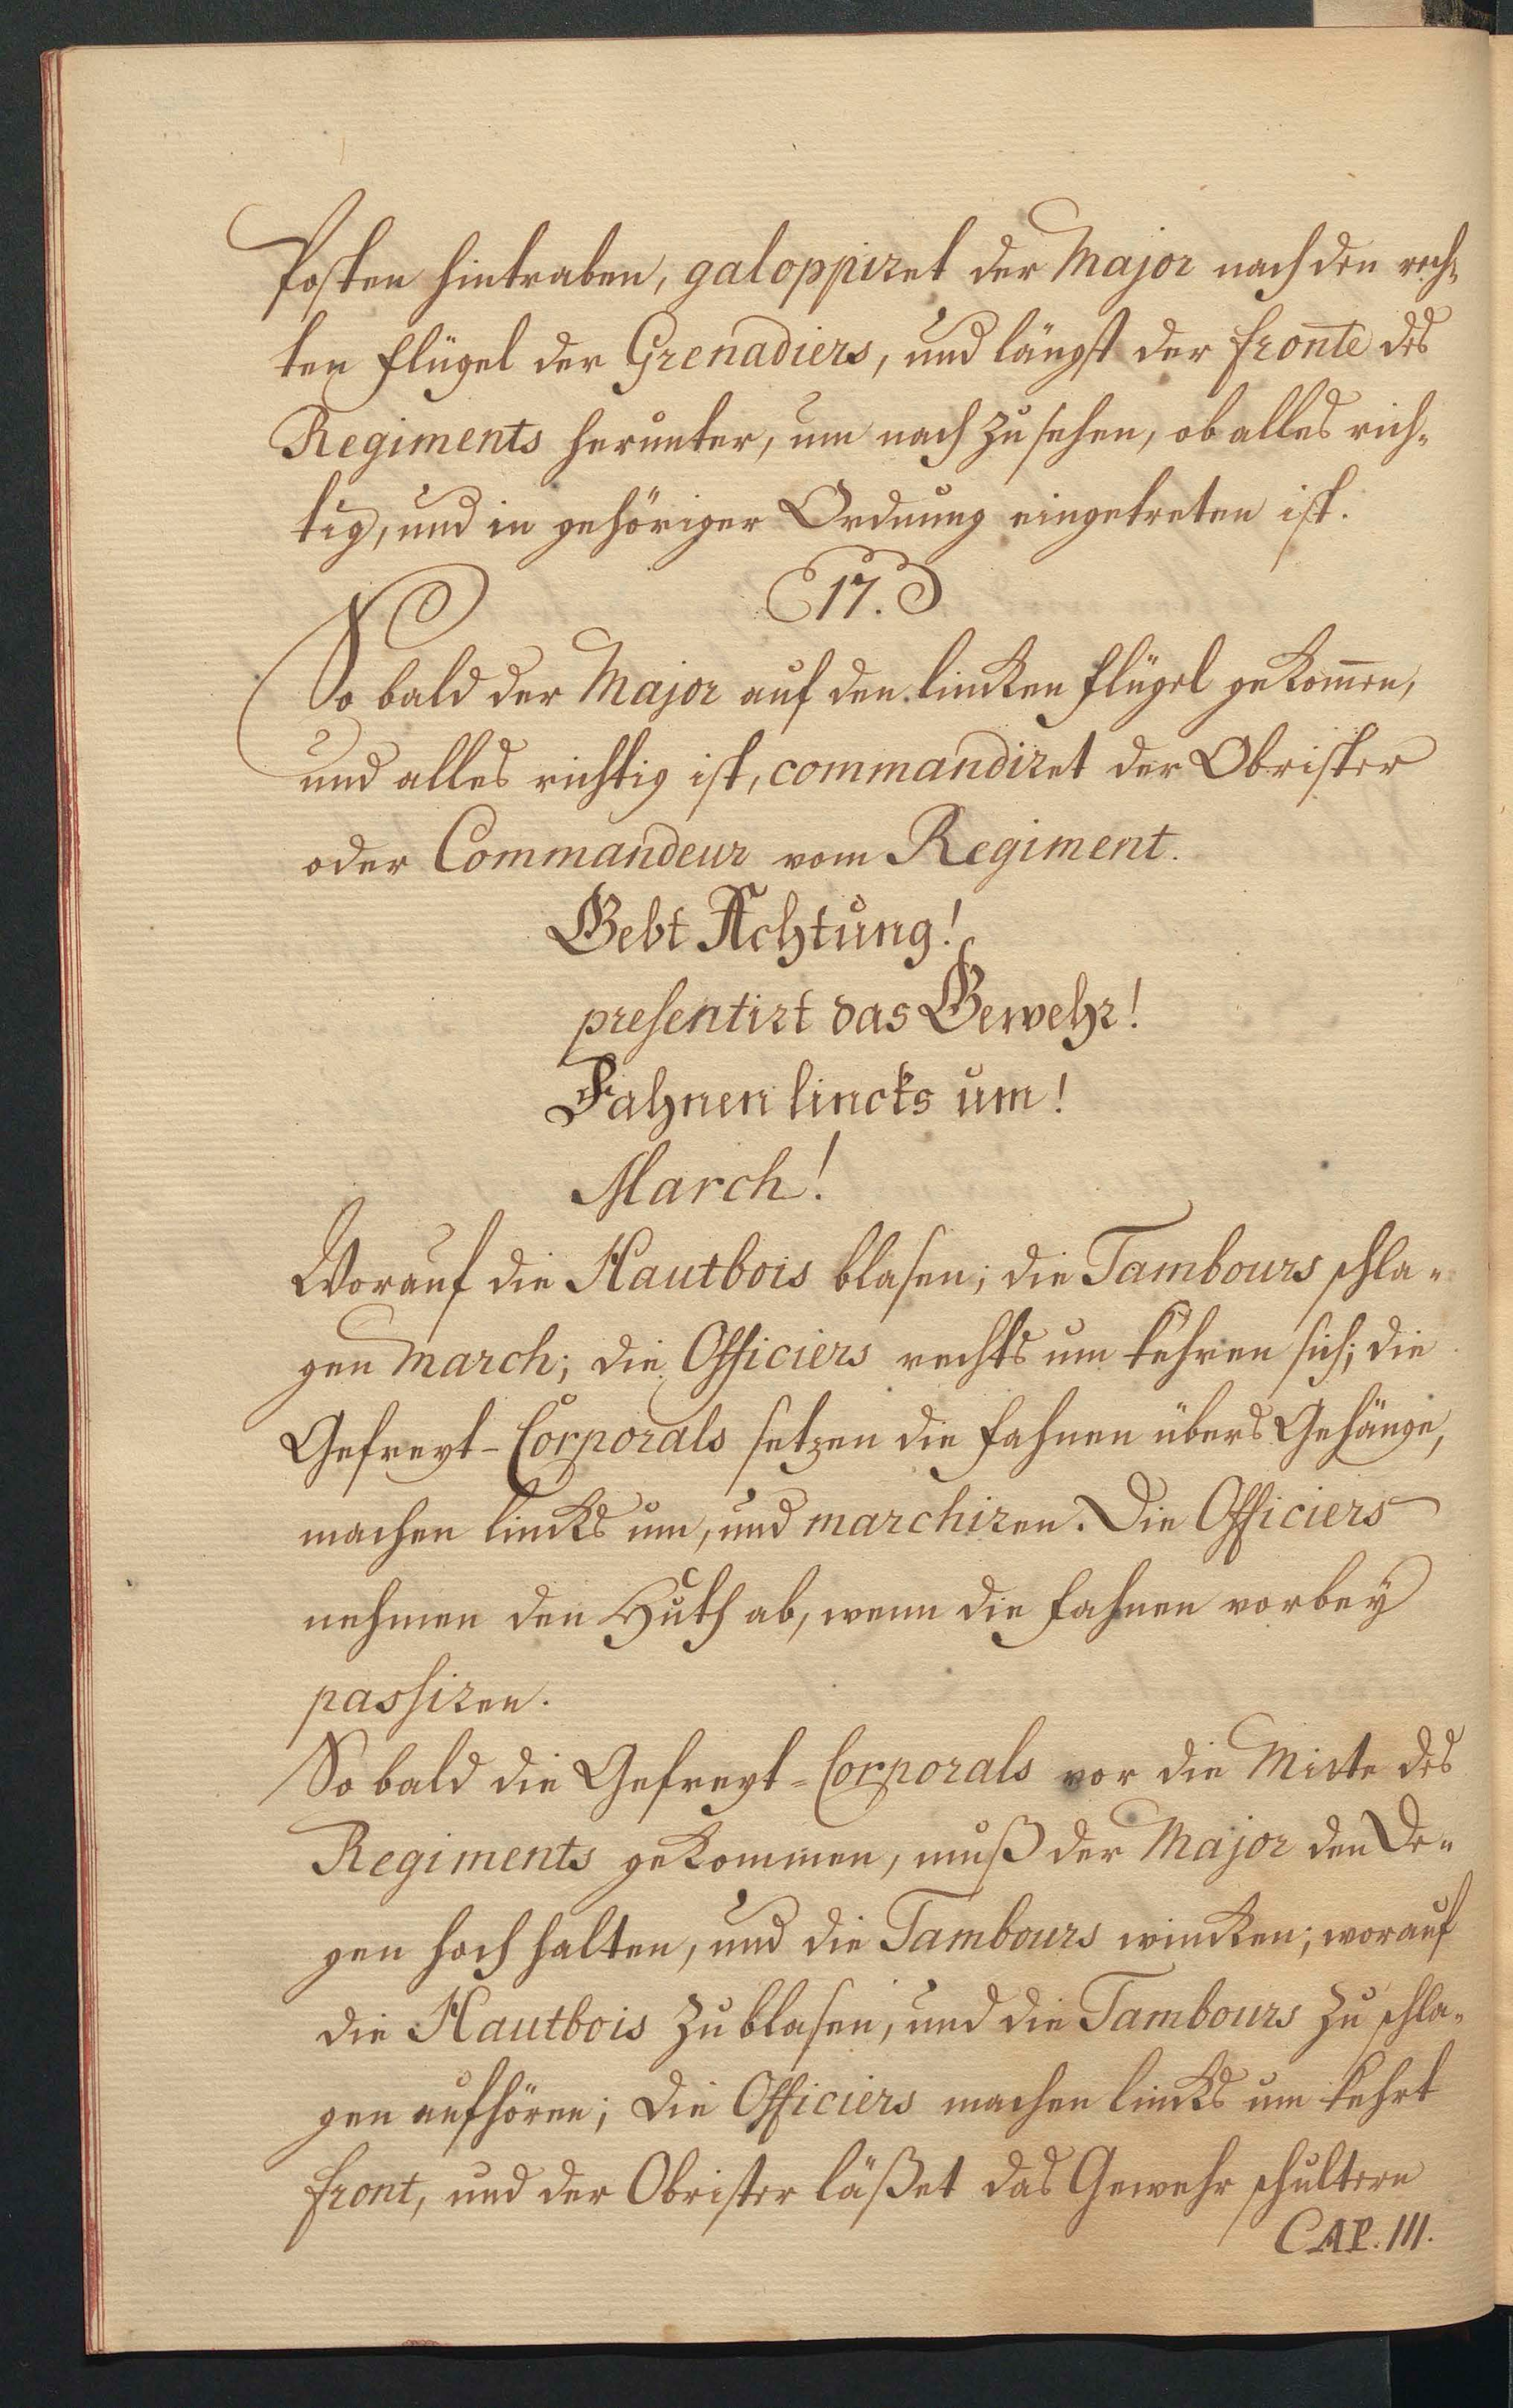 Posten hintraben, galoppiret der Major nach den rech-
ten Flügel der Grenadiers, und längst der Fronte des
Regiments herunter, um nach zu sehen, ob alles rich-
tig, und in gehöriger Ordnung eingetreten ist.
17.
So bald der Major auf den lincken Flügel gekom̄en,
und alles richtig ist, commandiret der Obrister
oder Commandeur vom Regiment.
Gebt Achtung!
presentirt das Gewehr!
Fahnen lincks um!
March!
Worauf die Hautbois blasen; die Tambours schla-
gen March; die Officiers rechts um kehren sich; die
Gefreyt-Corporals setzen die Fahnen übers Gehänge,
machen lincks um, und marchiren. Die Officiers
nehmen den Huth ab, wenn die Fahnen vorbey
passiren.
So bald die Gefreyt-Corporals vor die Mitte des
Regiments gekommen, muß der Major den De-
gen hoch halten, und die Tambours wincken; worauf
die Hautbois zu blasen, und die Tambours zu schla-
gen aufhören; die Officiers machen lincks um kehrt
Front, und der Obrister läßet das Gewehr schultern
CAP. III.